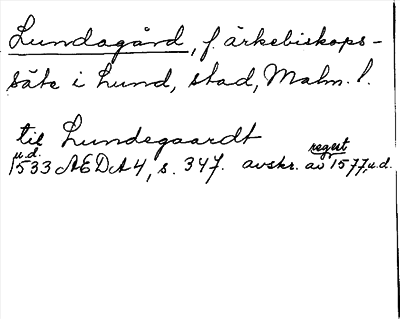 Lundagård, f. ärkebiskops-
säte i Lund, stad, Malm. l.
til Lundegaardt
u.d. regest
1533 AEDA4, s. 347. avskr. av 1577, u.d.